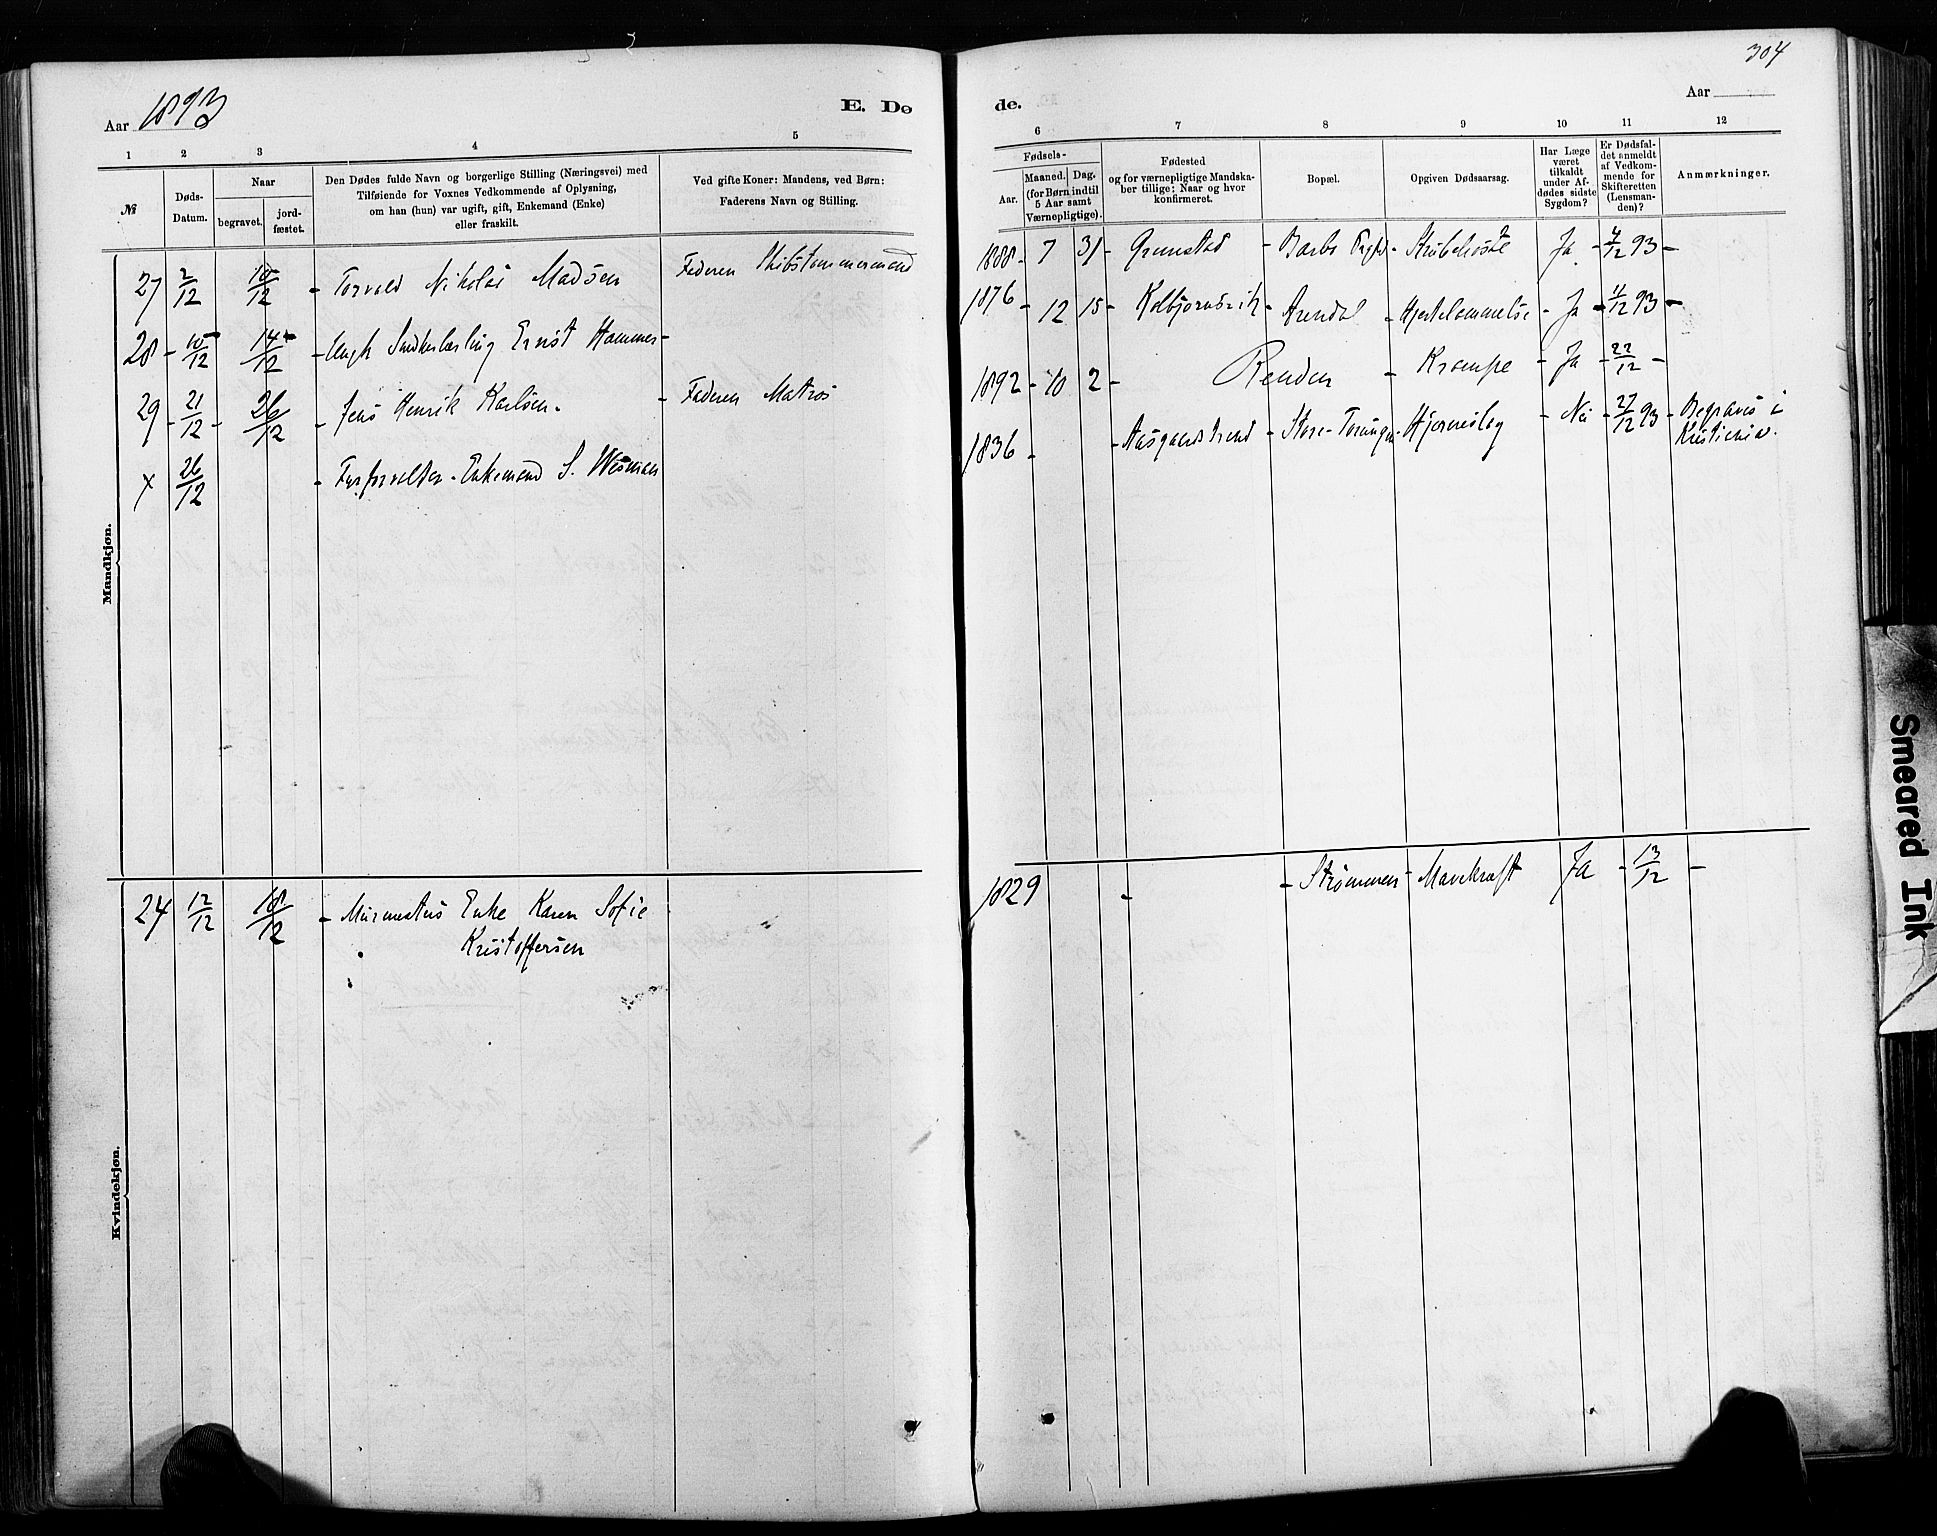 304
Aar 1893
E. Dø
de.
Aar
1 2 3 4 5
6 7 8 9 10 11 12
№
Døds-
Datum.
Naar
begravet.
jord-
fæstet.
Den Dødes fulde Navn og borgerlige Stilling (Næringsvei) med
Tilføiende for Voxnes Vedkommende af Oplysning,
om han (hun) var ugift, gift, Enkemand (Enke)
eller fraskilt.
Ved gifte Koner: Mandens, ved Børn:
Faderens Navn og Stilling.
Fødsels-
Aar.
Maaned. Dag.
(for Børn indtil
5 Aar samt
Værnepligtige).
Fødested
og for værnepligtige Mandska-
ber tillige: Naar og hvor
konfirmeret.
Bopæl.
Opgiven Dødsaarsag.
Har Læge
været
tilkaldt
under Af-
dødes sidste
Sygdom?
Er Dødsfal-
det anmeldt
af Vedkom-
mende for
Skifteretten
(Lensman-
den)?
Anmærkninger.
Mandkjøn.
27 2/12 10/12 - Torvald Nikolai Madsen Faderen Skibstømmermand 1888 - 7 31 - Grimstad - Barbo - Strubehoste Ja - 4/12 93 -
28 - 10/12 14/12 - Ugift Snedkerlærling Ernst Hammer - 1876 - 12 15 - Kolbjørnsvik - Arendal - Hjertelammelse - Ja - 11/12 93 -
29 - 21/12 - 26/12 - Jens Henrik Karlsen. - Faderen Matros 1892 - 10 2 - Renden - Krampe - Ja - 22/12 -
x 26/12 - Fyrforvalter - Enkemand S. Wesman 1836 - - Aasgaardstrand - Store-Torungen - Hjerneslag - Nei - 27/12 93 - Begraves i
Kristiania.
Kvindekjøn.
24 12/12 18/12 - Murmesters Enke Karen Sofie 1829 - - Strømmen - Mavekræft Ja - 13/12 -
Kristoffersen
Smeared Ink